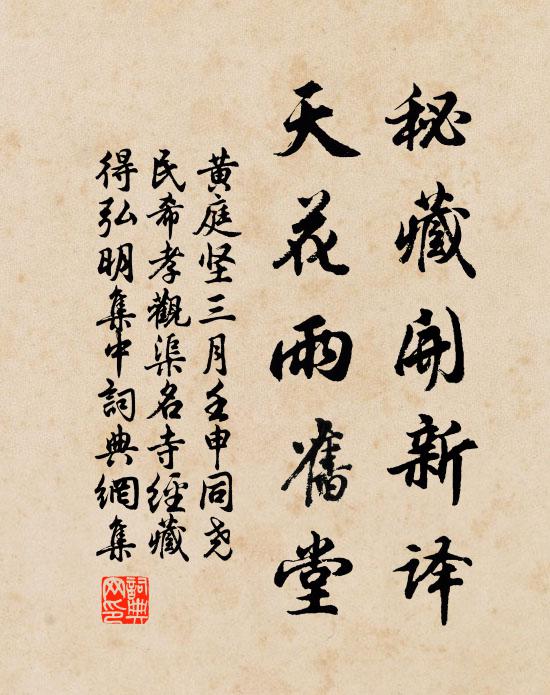 秘藏開新译
天花雨舊堂
黄庭坚三月壬申同尧
民希孝觀渠名寺經藏
得弘明集中詞典網集
詞典网印